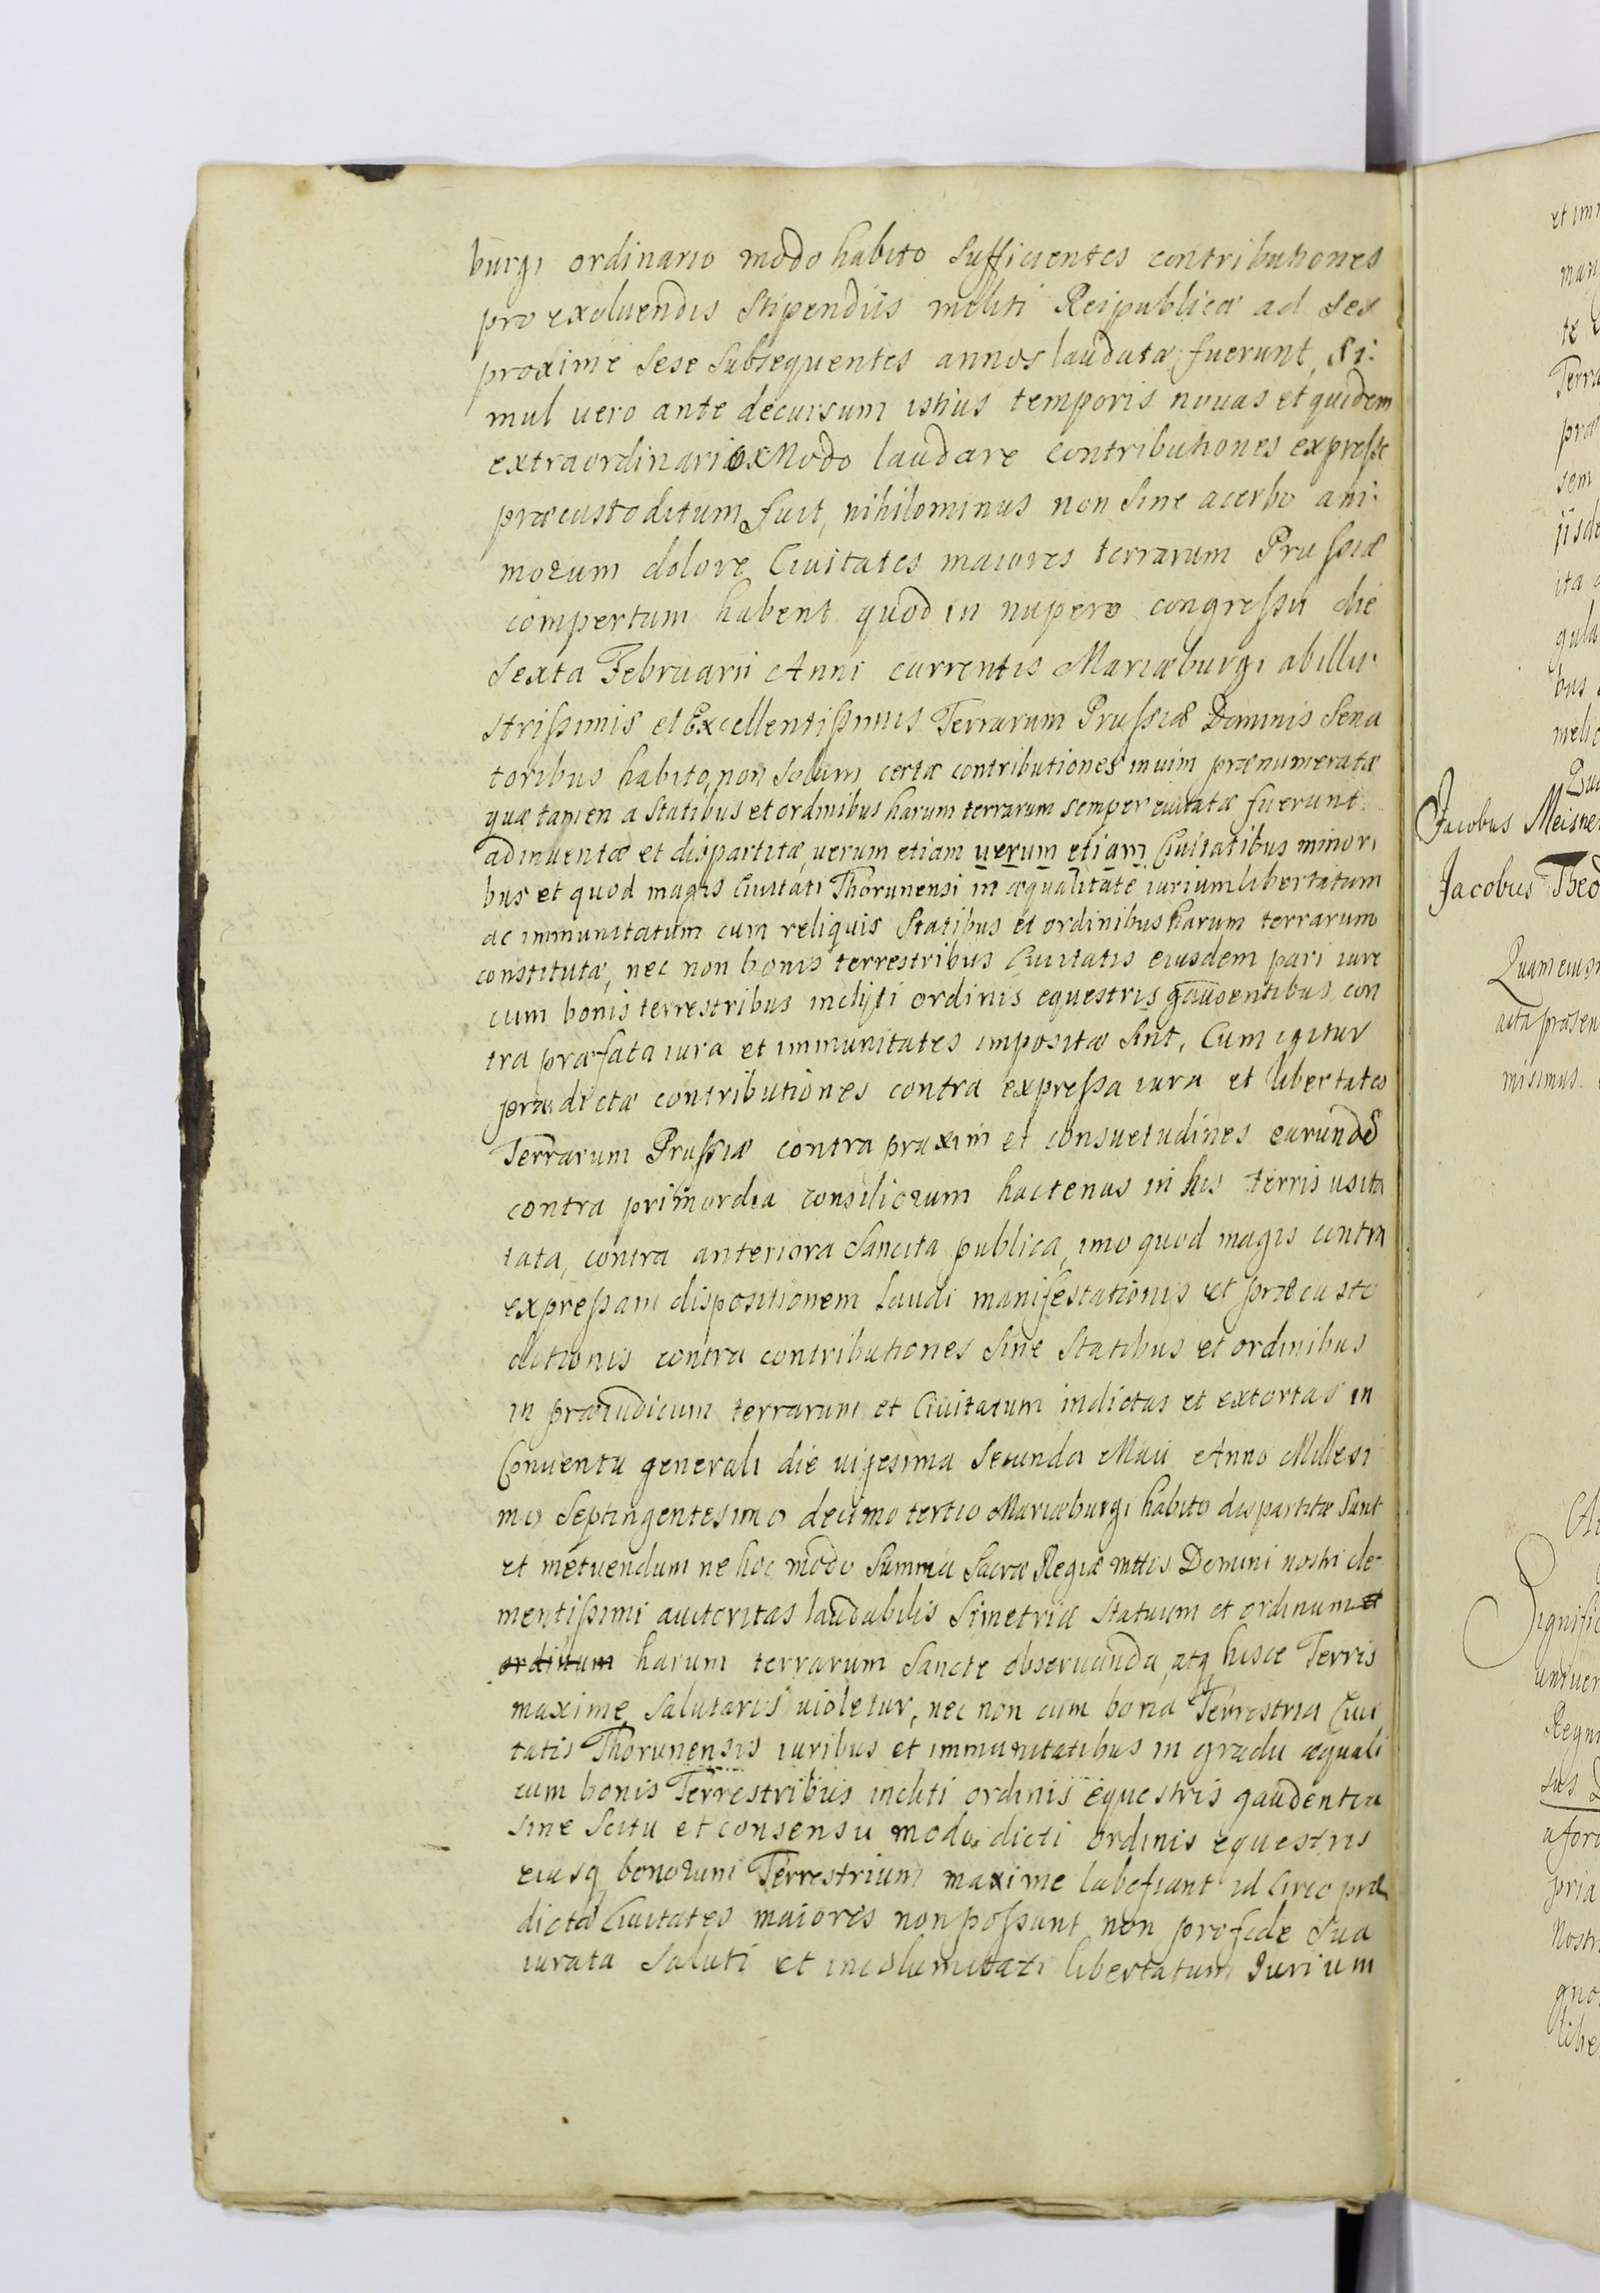 burgi ordinario modo habito Sufficientes contributiones
pro exoluendis Stipendiis militi Reipublicæ ad Sex
proxime Sese Subsequentes annos laudatæ fuerunt, Si:
mul uero ante decursum istius temporis nouas et quidem
extraordinario Modo laudare contributiones expresse
præcustoditum fuit, nihilominus non Sine acerbo ani:
morum dolore Ciuitates maiores terrarum Prussiæ
compertum habent quod in nupero congressu die
Sexta Februarii Anni currentis Mariæburgi ab illu:
strissimis et Excellentissimis Terrarum Prussiæ Dominis Sena
toribus habito, non Solum certæ contributiones in uim prænumeratæ
quæ tamen a Statibus et ordinibus harum terrarum semper euitatæ fuerunt
adinuentæ et dispartitæ, uerum etiam uerum etiam Ciuitatibus minori
bus et quod magis Ciuitati Thorunensi in æqualitate iurium libertatum
ac immunitatum cum reliquis Statibus et ordinibus harum terrarum
constitutæ, nec non bonis terrestribus Ciuitatis eiusdem pari iure
cum bonis terrestribus inclyti ordinis equestris gaudentibus, con
tra præfata iura et immunitates impositæ Sint, Cum igitur
prædictæ contributiones contra expressa iura et libertates
Terrarum Prussiæ contra praxim et consuetudines earundē
contra primordia consiliorum hactenus in his terris usita
tata, contra anteriora Sancita publica, imo quod magis contra
expressam dispositionem Laudi manifestationis et præcusto
ditionis contra contributiones Sine Statibus et ordinibus
in præiudicium terrarum et Ciuitatum indictas et extortas in
Conuentu generali die uigesima Secunda Maii Anno Millesi
mo Septingentesimo decimo tertio Mariæburgi habito dispartitæ Sunt
et metuendum ne hoc modo Summa Sacræ Regiæ mttis Domini nostri cle-
mentissimi autoritas laudabilis Simetria Statuum et ordinum et
ordinum harum terrarum Sancte obseruanda, atq hisce Terris
maxime Salutaris uioletur, nec non cum bona Terrestria Ciui
tatis Thorunensis iuribus et immunitatibus in gradu æquali
cum bonis Terrestribus incliti ordinis equestris gaudentia
Sine Scitu et consensu modo dicti ordinis equestris
eiusq bonorum Terrestrium maxime labefiant id Circo præ
dictæ Ciuitates maiores non possunt non pro fide Sua
iurata Saluti et incolumitati libertatum Iurium
et im
te
Terra
præ
sem
ita
gula
bus
Jacobus Meisne
Jacobus Theo
Quam eius
acta præsen
misimus.
Signific
uniuer
Regni
a foro
pria
Nostr
gno
libe